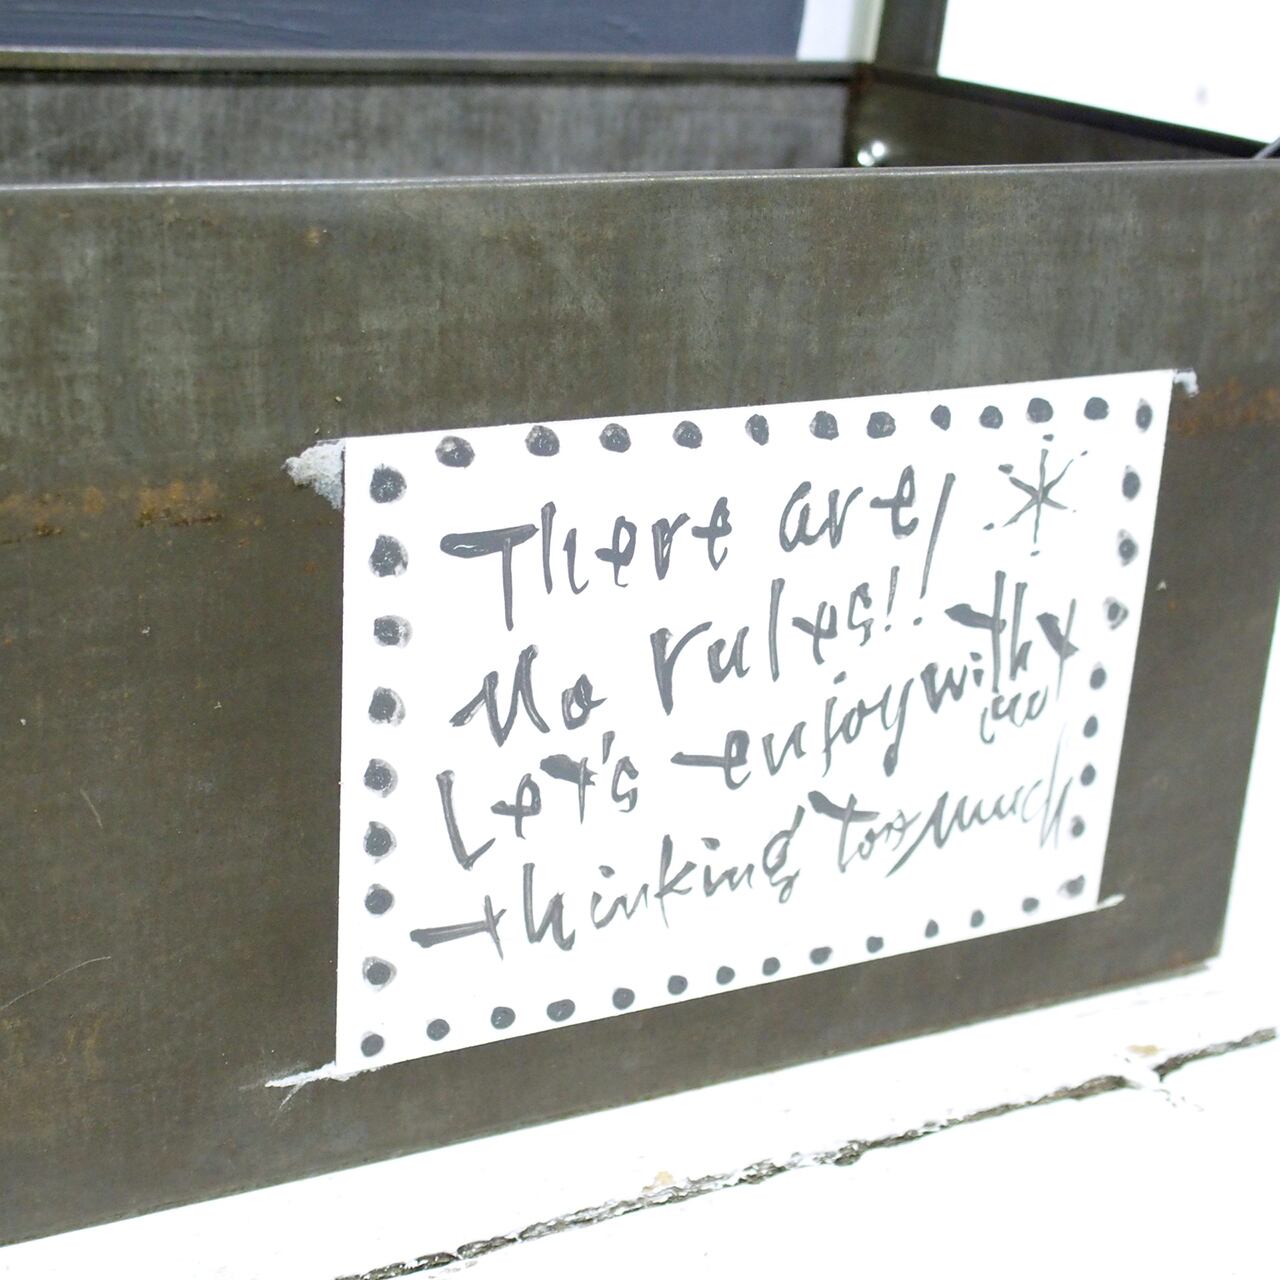 There are
No rules!!
Let's enjoy with
thinking too much